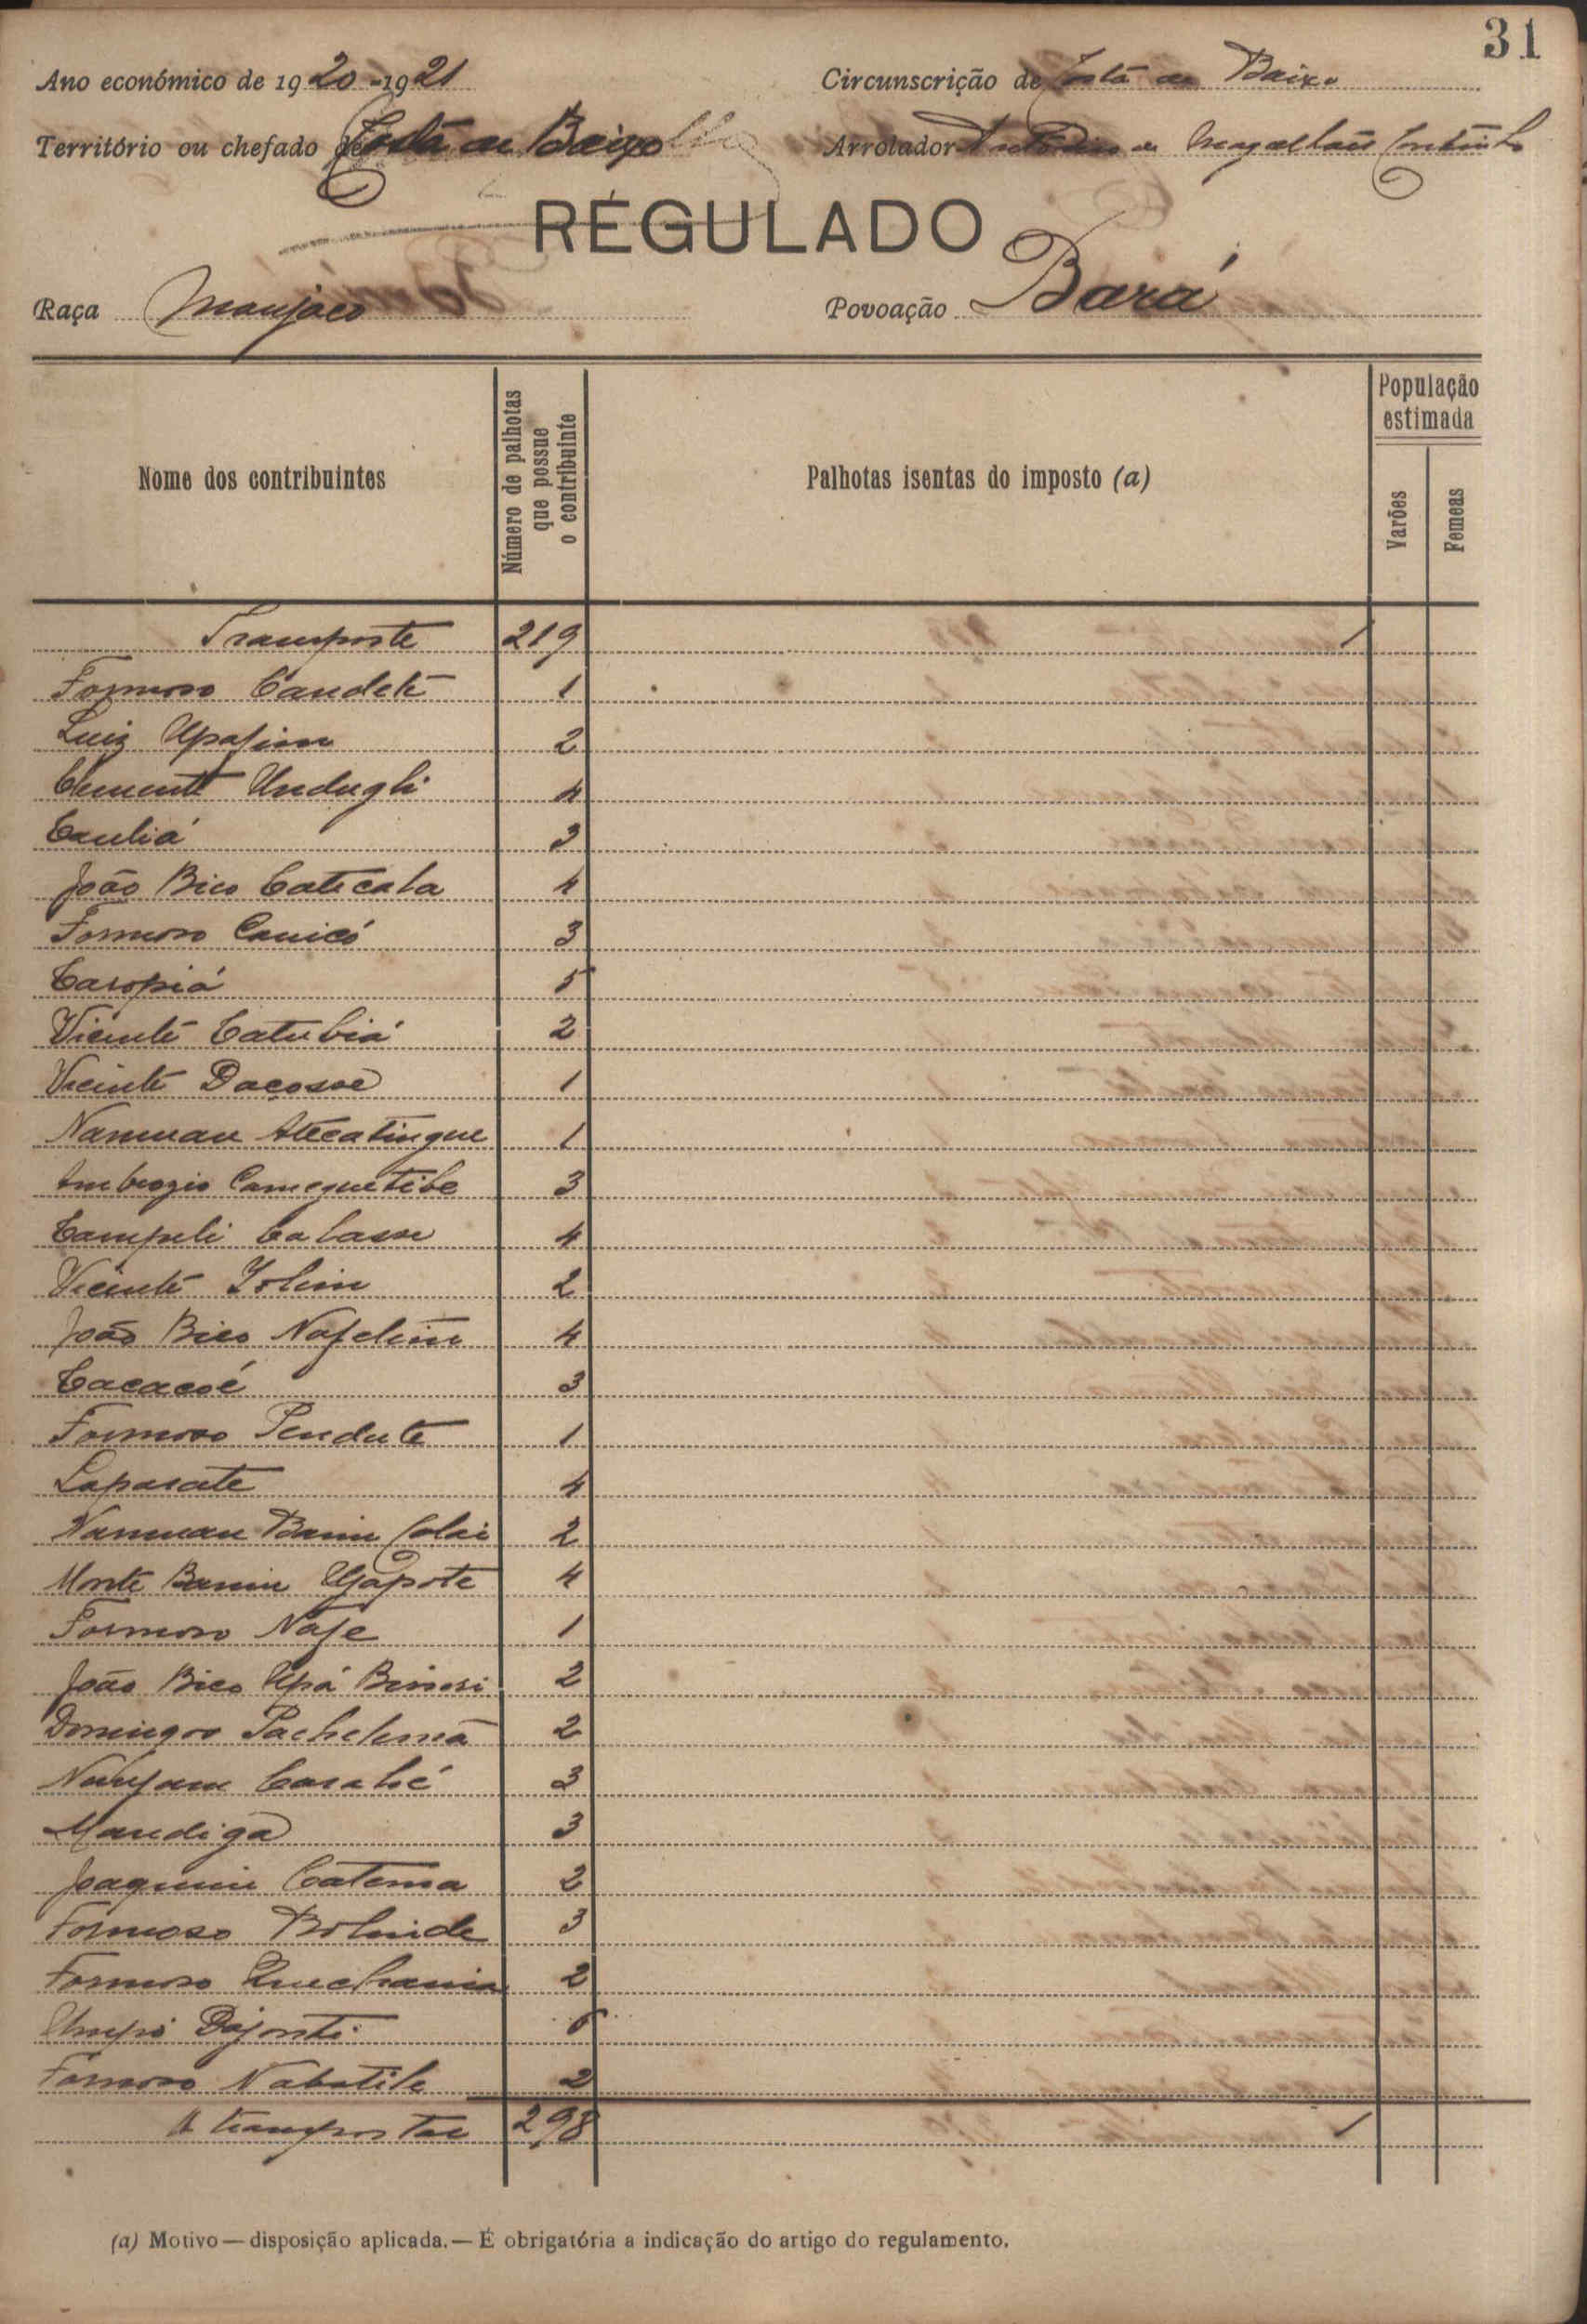 31
Ano económico de 1920-1921
Circunscrição de Costa de Baixo
Território ou chefado de Costa de Baixo
Arrolador Antonio de Magalhães Coutinho
RÉGULADO
Raça Manjaco
Povoação Bará
Nome dos contribuintes
Número de palhotas que possue o contribuinte
Palhotas isentas do imposto (a)
População estimada
Varões
Femeas
Transporte 219 1
Formoso Candeté 1
Luiz Upafim 2
Clemente Undugli 4
Cauliá 3
João Bico Caticala 4
Formoso Canicó 3
Caropiá 5
Vicente Catubiá 2
Vicente Dacosse 1
Nanuau Atecatingue 1
Ambrozio Camequetibe 3
Campeli Calasse 4
Vicente Iolim 2
João Bico Nafelim 4
Cacacoé 3
Formoso Pendute 1
Laparate 4
Nanuau Banin Colai 2
Monte Banin Ugapote 4
Formoso Nafe 1
João Bico Upá Binosi 2
Domingos Pachelemá 2
Carahé 3
Mandiga 3
Joaquim Catema 2
Formoso Bolnide 3
Formoso 2
Dajonti 5
Formoso Nabatile 2
A transportar 298 1
(a) Motivo — disposição aplicada. — É obrigatória a indicação do artigo do regulamento.